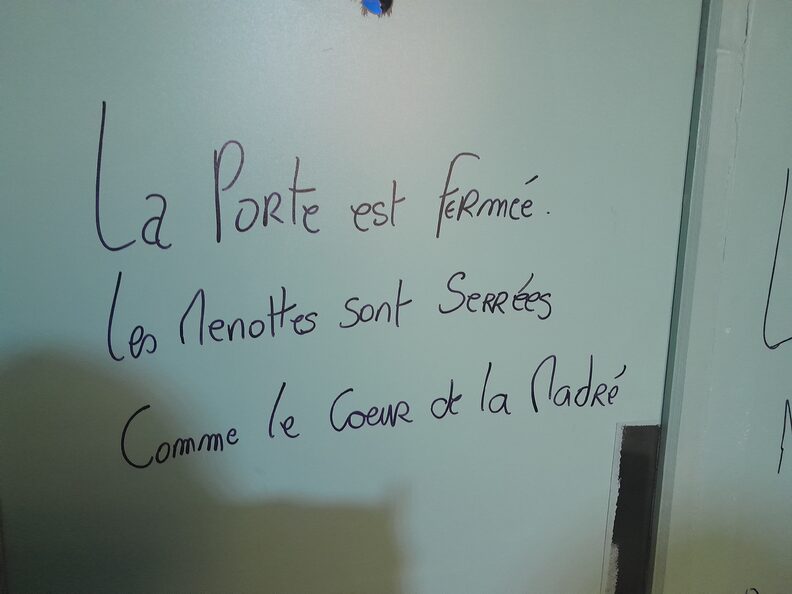 La Porte est fermeé.
Les Menottes sont Serrées
Comme le Coeur de la Madré